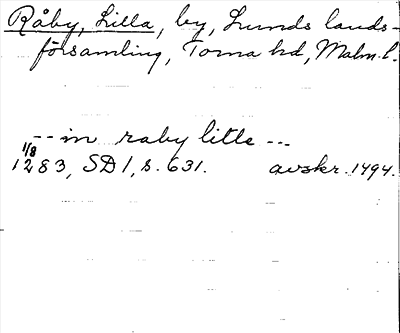 Råby, Lilla, by, Lunds lands-
församling, Torna hd, Malm. l.
-- in raby litle ---
1/8
1283, SD 1, s. 631. avskr. 1494.